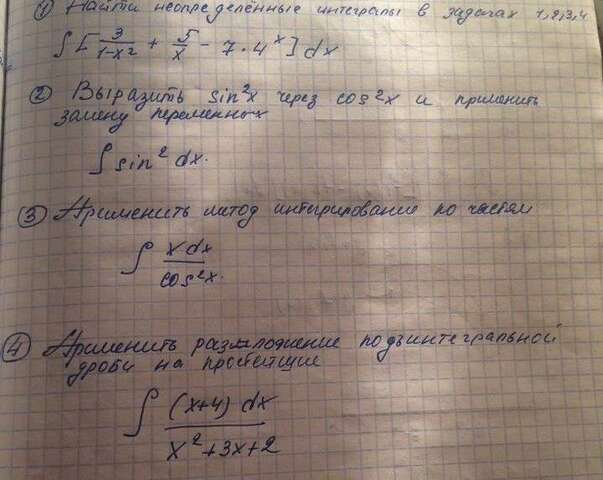 ① Найти неопределённые интегралы в задачах 1,2,3,4
∫ [3/(1-x²) + 5/x - 7·4ˣ] dx
② Выразить sin²x через cos²x и применить
замену переменных
∫ sin² dx.
③ Применить метод интегрирование по частям
∫ x dx / cos²x.
④ Применить разложение подынтегральной
дроби на простейшие
∫ (x+4) dx / x²+3x+2